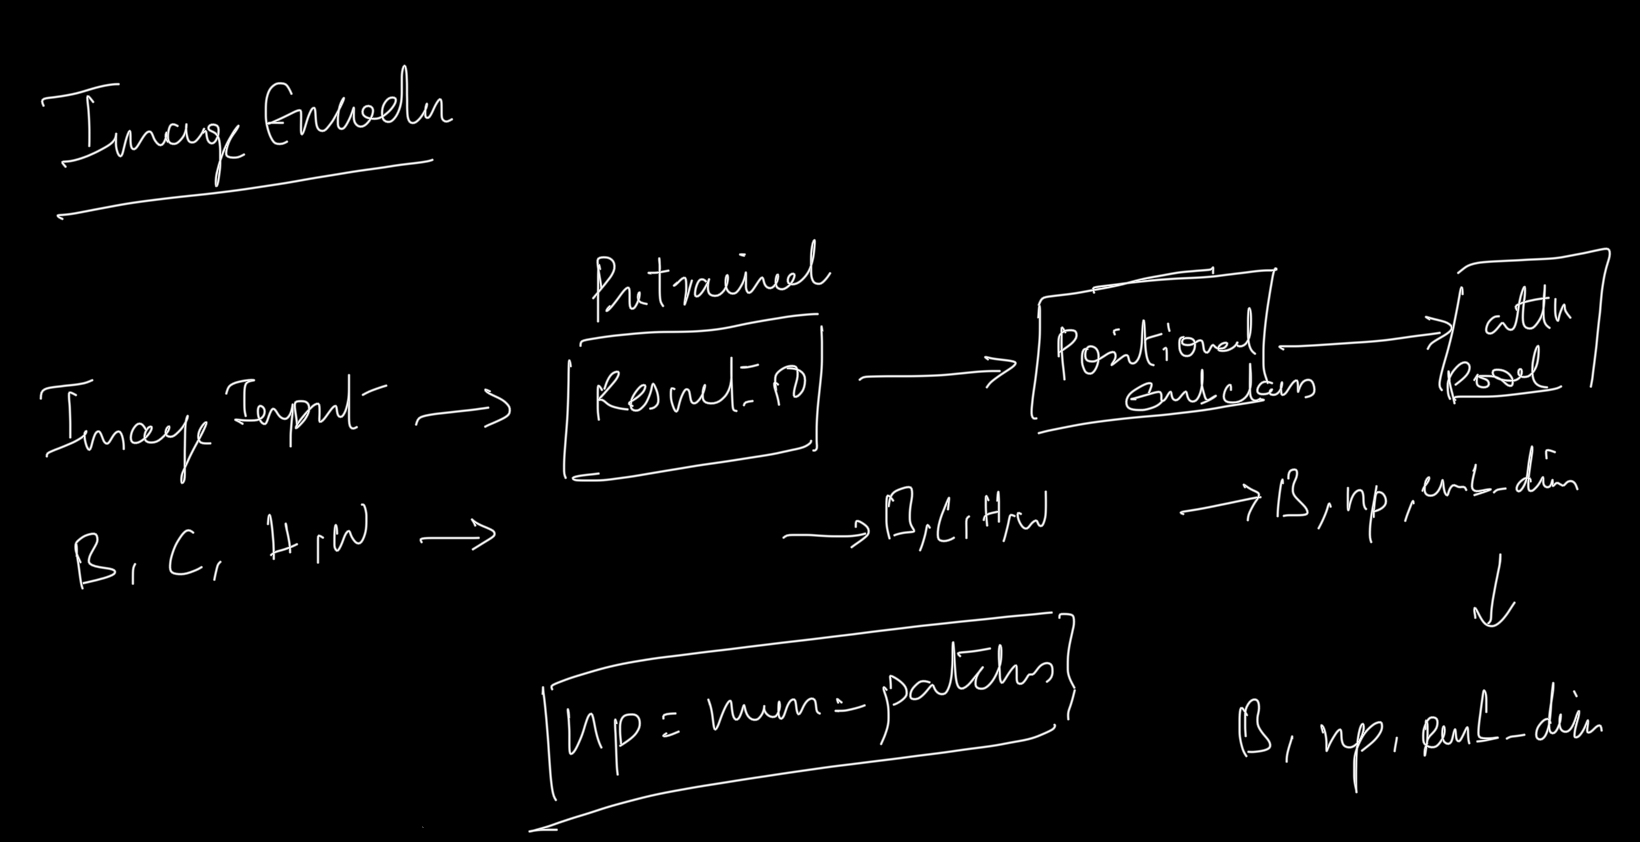 Image Encoder
Pretrained
Image Input → Resnet- → Positional Emb class → attn pool
B, C, H, W → → B, C, H, W → B, np, emb_dim
↓
np = num_patches
B, np, emb_dim